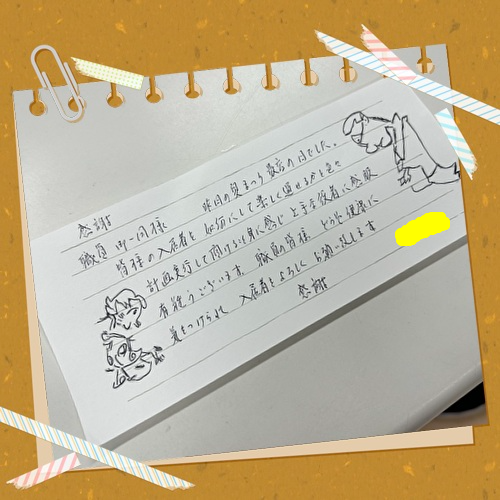 感謝
職員 御一同様 昨日の夏まつり最高の日でした。
皆様の入居者を如何にして楽しく過せるかと色々
計画実行して頂ける事に感じ上手な後者に感激
有難うございます。職員の皆様 どうか健康に
気をつけられ 入居者をよろしくお願い致します
感謝